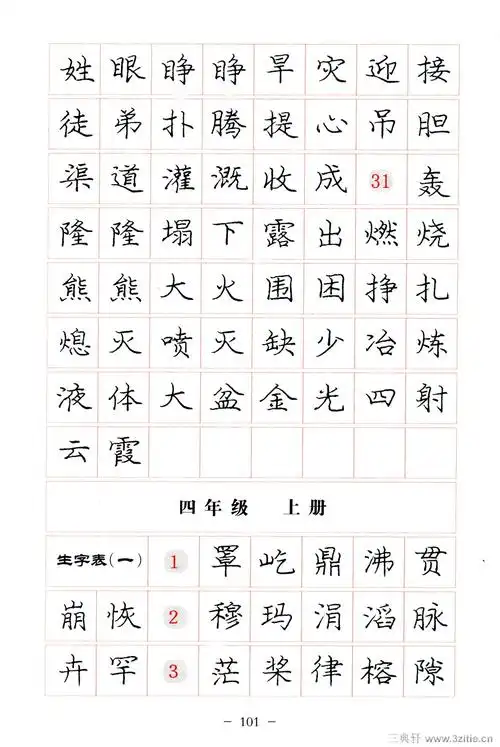 姓眼睁睁旱灾迎接
徒弟扑腾提心吊胆
渠道灌溉收成31轰
隆隆塌下露出燃烧
熊熊大火围困挣扎
熄灭喷灭缺少冶炼
液体大盆金光四射
云霞
四年级 上册
生字表(一) 1 罩屹鼎沸贯
崩恢 2 穆玛涓滔脉
卉罕 3 茫桨律榕隙
- 101 -
三典轩 www.3zitie.cn